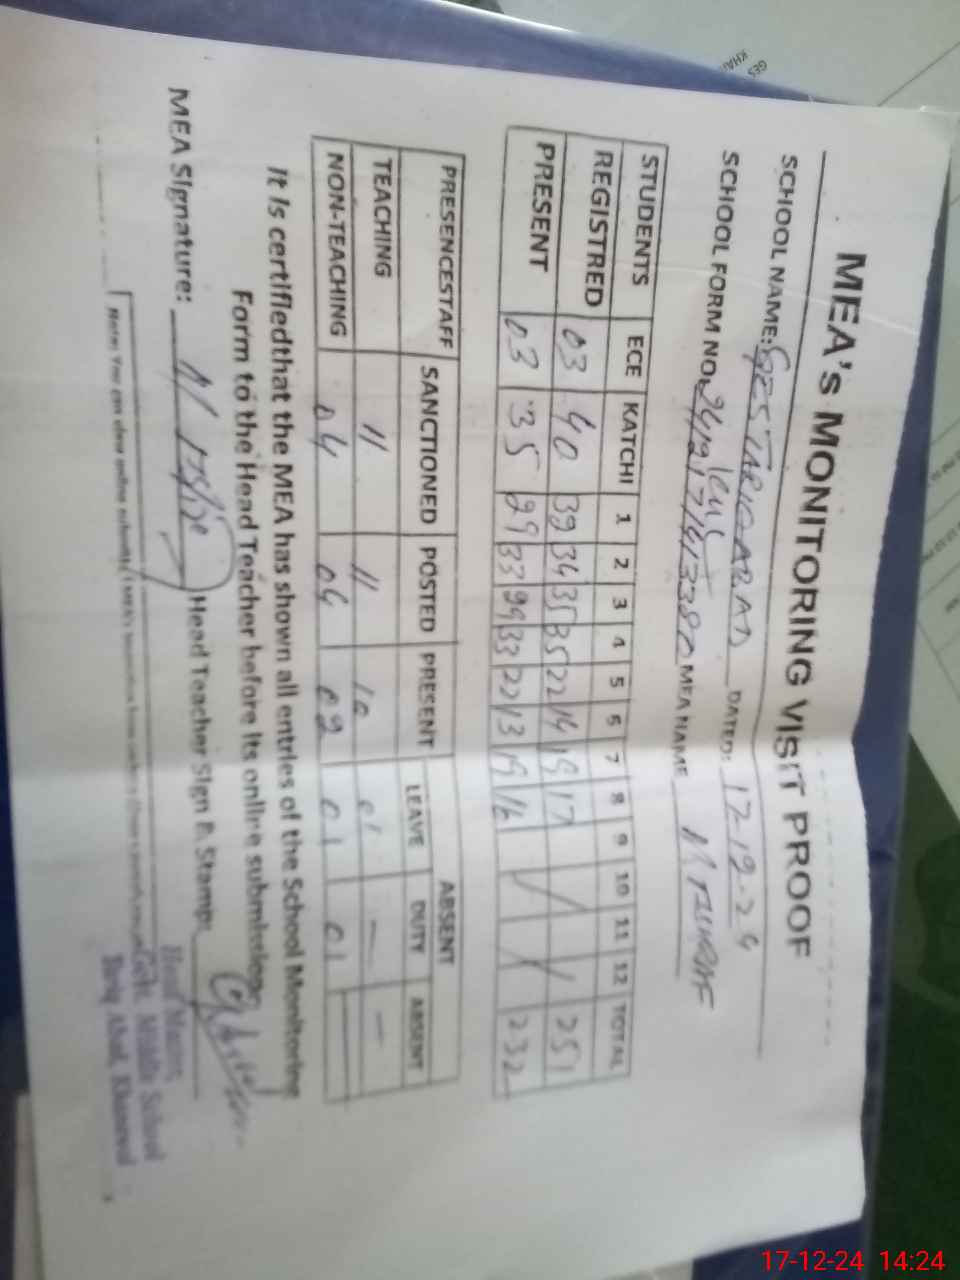 MEA's MONITORING VISIT PROOF
SCHOOL NAME: GES TARIQ ABAD DATED: 17-12-24
SCHOOL FORM NO: MEA NAME
STUDENTS ECE KATCHI 1 2 3 4 5 6 7 8 9 10 11 12 TOTAL
REGISTRED 03 40 39 34 35 35 22 14 19 17 251
PRESENT 03 35 29 33 29 33 22 13 19 16 232
PRESENCESTAFF SANCTIONED POSTED PRESENT ABSENT
LEAVE DUTY ABSENT
TEACHING 11 11 10 01 — —
NON-TEACHING 04 04 02 01 01
It is certifiedthat the MEA has shown all entries of the School Monitoring
Form to the Head Teacher before its online submission.
MEA Signature: Head Teacher Sign & Stamp:
Head Master
Govt. Middle School
Tariq Abad, Khanewal
Note: You can show online submitted
GES
KHA
17-12-24 14:24